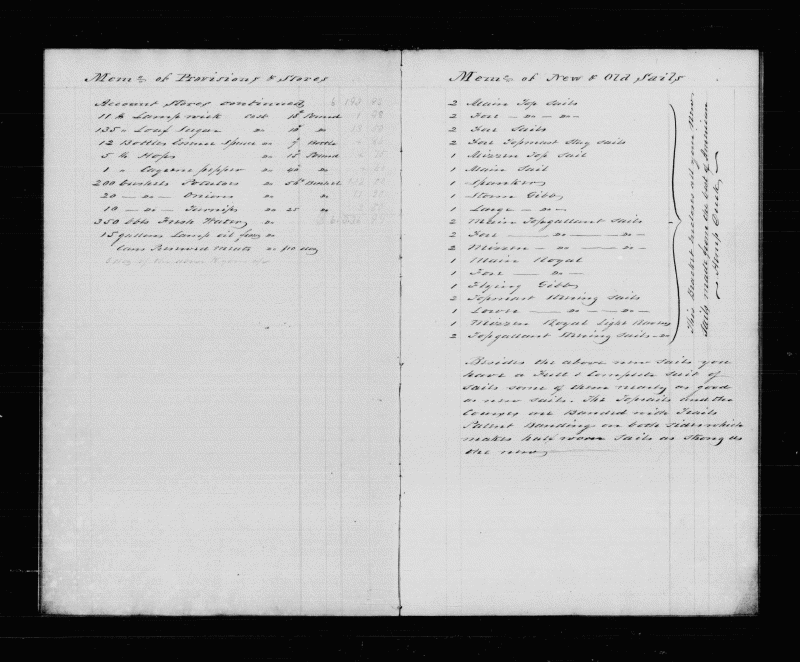 Mem:o of Provisions & Stores
Account Stores continued
11 lb Lamp wick Cost 18d Pound
135 " Loaf Sugar " 10d "
12 Bottles Essence Spruce " Bottle
5 lb Hops " 15d Pound
1 " Cayenne pepper "
200 bushels Potatoes " Bushel
20 — do — Onions "
10 — do — Turnips " 25 "
350 bbls Fresh Water "
15 gallons Lamp oil "
Cans Preserved meats " per day
Mem:o of New & Old Sails
2 Main Top Sails
2 Fore — do — do —
2 Fore Sails
2 Fore Topmast Stay sails
1 Mizzen Top Sail
1 Main Sail
1 Spanker
1 Storm Gibb
1 Large — do
2 Main Topgallant Sails
2 Fore — do — do —
2 Mizzen — do — do —
1 Main Royal
1 Fore — do —
1 Flying Gibb
2 Topmast Stering Sails
1 Lower — do — do —
1 Mizzen Royal Light
2 Topgallant Stering Sails
This Bracket incloses all your new
Sails made from the best of American
Hemp Duck
Besides the above new sails you
have a Full & Complete Suit of
Sails some of them nearly as good
as new sails. The Topsails and the
Courses are Banded with Trails
Patent Banding on both sides which
makes half worn Sails as Strong as
the new